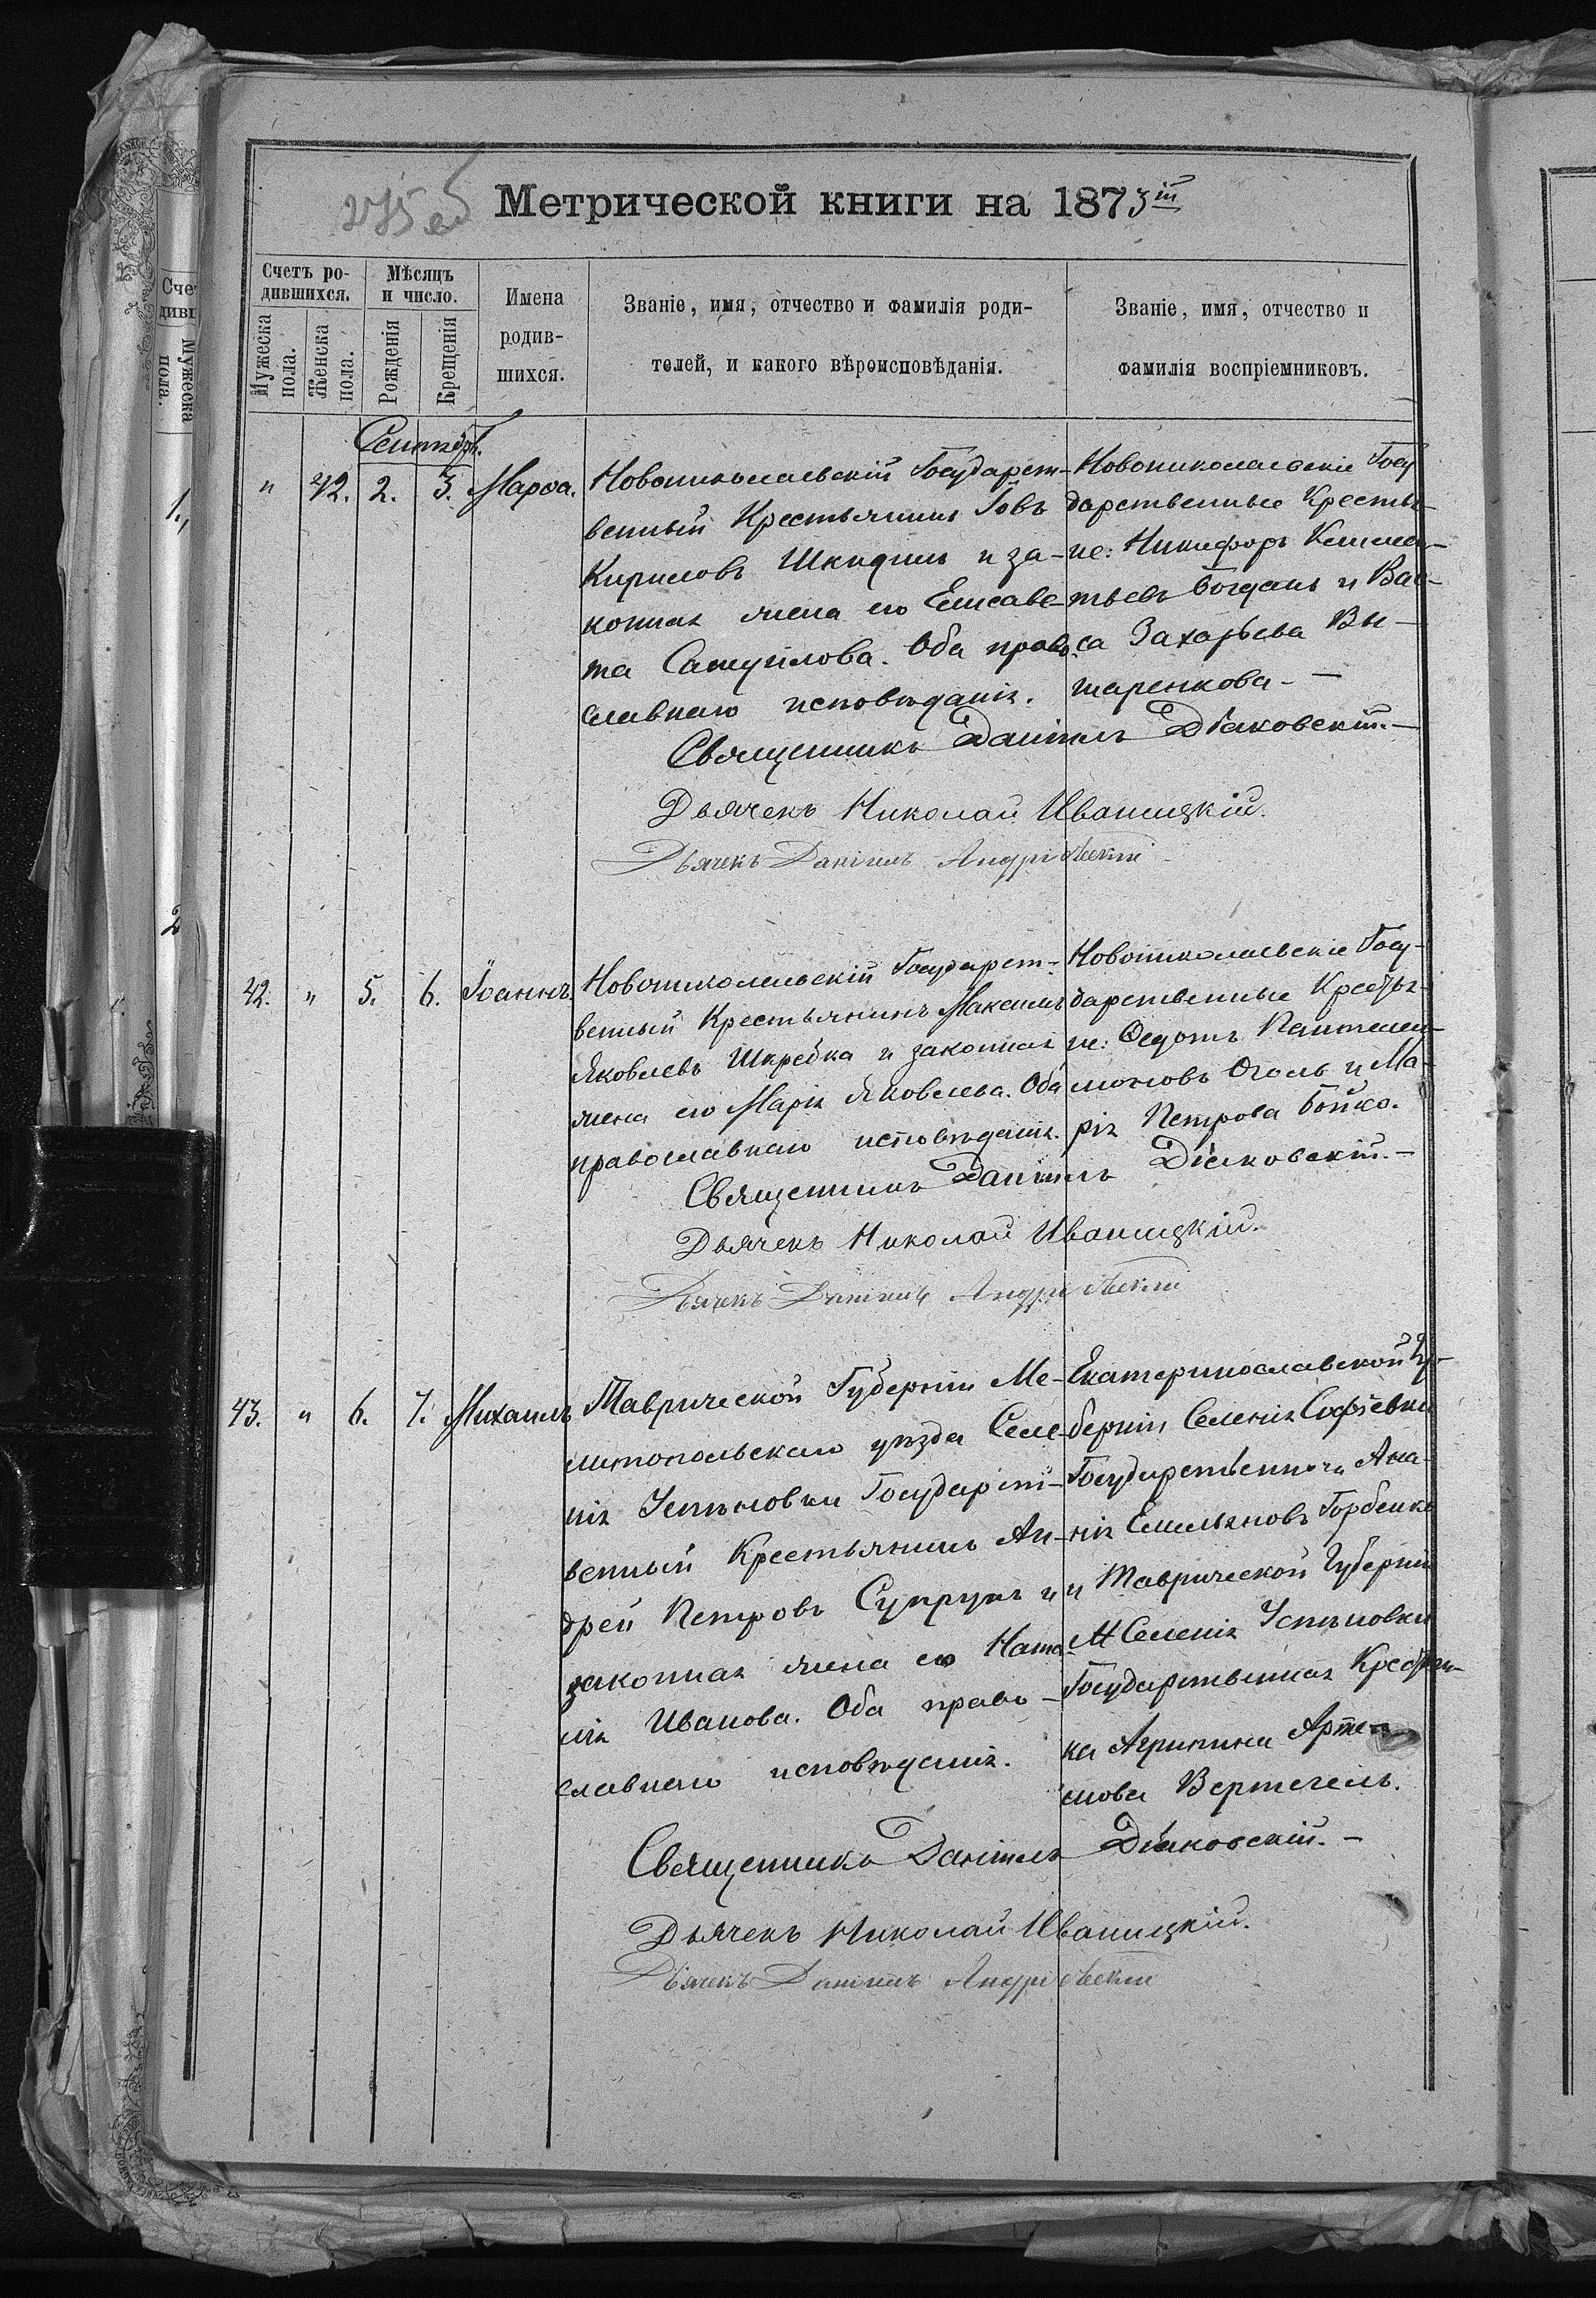 275 об
Метрической книги на 1873ій
Счетъ ро-
дившихся.
Мѣсяцъ
и число.
Имена
родив-
шихся.
Званіе, имя, отчество и фамилія роди-
телей, и какого вѣроисповѣданія.
Званіе, имя, отчество и
фамилія воспріемниковъ.
Мужеска
пола.
Женска
пола.
Рожденія
Крещенія
Сентябрь.
" 42. 2. 3. Марѳа.
Новониколаевскій Государст-
венный Крестьянинъ Іовъ
Кириловъ Шкидинъ и за-
конная жена его Елисаве-
та Самуйлова. Оба право-
славнаго исповѣданія.
Новониколаевскіе Госу
дарственные Крестья-
не: Никифоръ Климен-
тьевъ Богданъ и Вас-
са Захарьева Ви-
таренкова.—
Священникъ Даніилъ Діаковскій.—
Дьячекъ Николай Иваницкій.
Дьячекъ Даніилъ Андріевскій
42. " 5. 6. Іоаннъ.
Новониколаевскій Государст-
венный Крестьянинъ Максимъ
Яковлевъ Шкребка и законная
жена его Марія Яковлева. Оба
православнаго исповѣданія.
Новониколаевскіе Госу-
дарственные Крестья-
не: Ѳедотъ Пантелеи-
моновъ Оголь и Ма-
рія Петрова Бойко.
Священникъ Даніилъ Діаковскій.—
Дьячекъ Николай Иваницкій.
Дьячекъ Даніилъ Андріевскій
43. " 6. 7. Михаилъ
Таврической Губерніи Ме-
литопольскаго уѣзда Селе-
нія Устиновки Государст-
венный Крестьянинъ Ан-
дрей Петровъ Супрунъ и
законная жена его Ната-
лія Иванова. Оба право-
славнаго исповѣданія.
Екатеринославской Гу-
берніи Селенія Софіевки
Государственный Ана-
нія Емельяновъ Горбенко
и Таврической Губерніи
М Селенія Устиновки
Государственная Крестьян-
ка Агрипина Арте-
мова Вертегель.
Священникъ Даніилъ Діаковскій.—
Дьячекъ Николай Иваницкій.
Дьячекъ Даніилъ Андріевскій